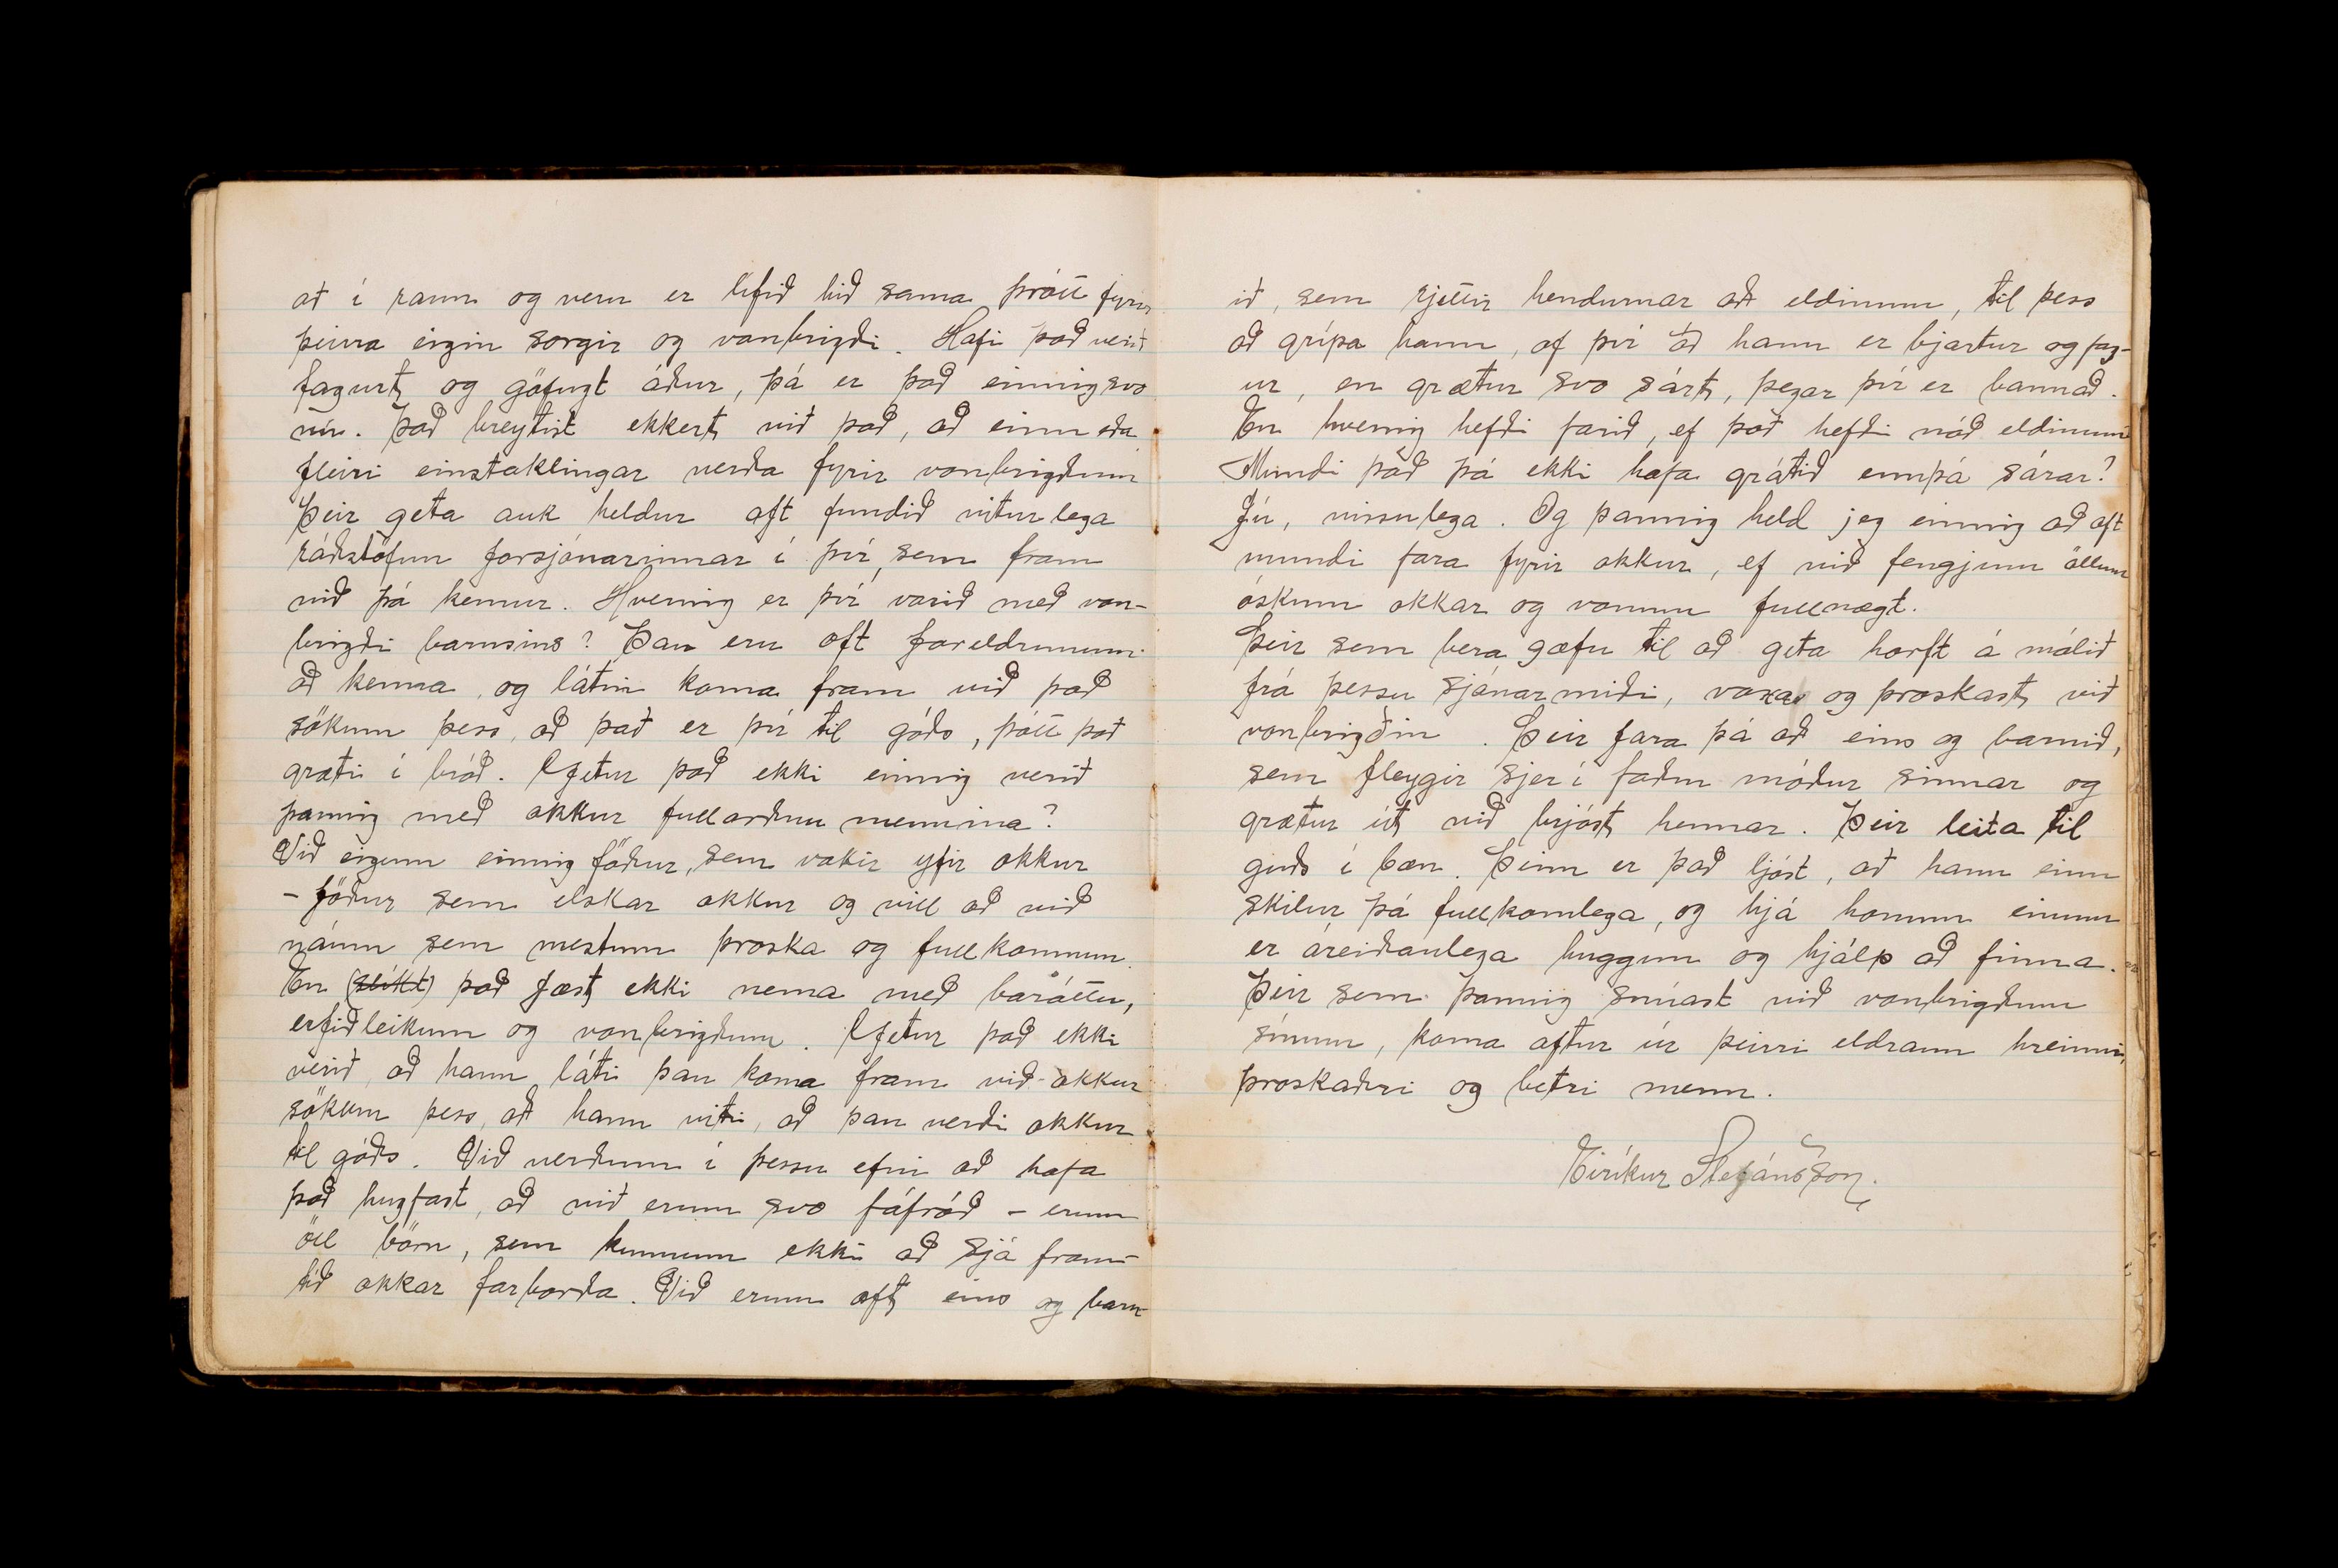 að í raun og veru er lífið hið sama þrátt fyrir
þeirra eigin sorgir og vonbrigði. Hafi það verið
fagurt og göfugt áður, þá er það einnig svo
nú. Það breytist ekkert við það, að einn eða
fleiri einstaklingar verða fyrir vonbrigðum
Þeir geta auk heldur oft fundið viturlega
ráðstöfun forsjónarinnar í því, sem fram
við þá kemur. Hvernig er því varið með von-
brigði barnsins? Þau eru oft foreldrunum
að kenna, og látin koma fram við það
sökum þess, að það er því til góðs, þótt það
gráti í bráð. Getur það ekki einnig verið
þannig með okkur fullorðnu mennina?
Við eigum einnig föður, sem vakir yfir okkur
- föður sem elskar okkur og vill að við
náum sem mestum þroska og fullkomnun.
En (slíkt) það fæst ekki nema með baráttu,
erfiðleikum og vonbrigðum. Getur það ekki
verið, að hann láti þau koma fram við okkur
sökum þess, að hann viti, að þau verði okkur
til góðs. Við verðum í þessu efni að hafa
það hugfast, að við erum svo fáfróð - erum
öll börn, sem kunnum ekki að sjá fram-
tíð okkar farborða. Við erum oft eins og barn
ið, sem rjettir hendurnar að eldinum, til þess
að grípa hann, af því að hann er bjartur og fag-
ur, en grætur svo sárt, þegar því er bannað.
En hvernig hefði farið, ef það hefði náð eldinum
Mundi það þá ekki hafa grátið ennþá sárar?
Jú, vissulega. Og þannig held jeg einnig að oft
mundi fara fyrir okkur, ef við fengjum öllum
óskum okkar og vonum fullnægt.
Þeir sem bera gæfu til að geta horft á málið
frá þessu sjónarmiði, vaxa og þroskast við
vonbrigðin. Þeir fara þá að eins og barnið,
sem fleygir sjer í faðm móður sinnar og
grætur út við brjóst hennar. Þeir leita til
guðs í bæn. Þeim er það ljóst, að hann einn
skilur þá fullkomlega, og hjá honum einum
er áreiðanlega huggun og hjálp að finna.
Þeir sem þannig snúast við vonbrigðum
sínum, koma aftur úr þeirri eldraun hreinni,
þroskaðri og betri menn.
Eiríkur Stefánsson.